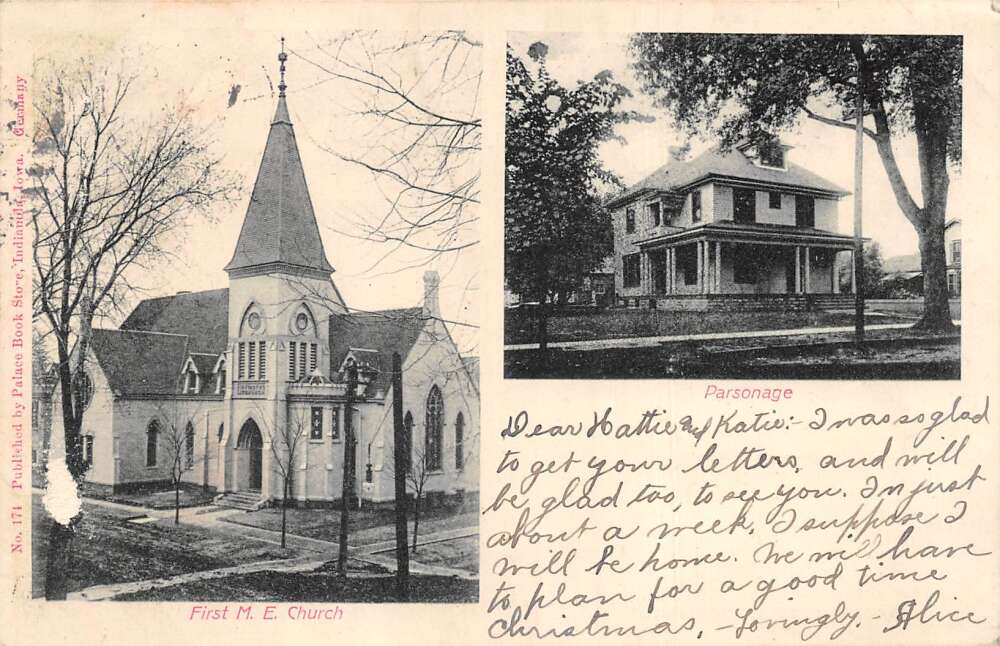 No. 174 Published by Palace Book Store, Indianola, Iowa. Germany
First M. E. Church
Parsonage
Dear Hattie and Katie:- I was so glad
to get your letters, and will
be glad too, to see you. In just
about a week, I suppose I
will be home. We will have
to plan for a good time
Christmas, - Lovingly, - Alice